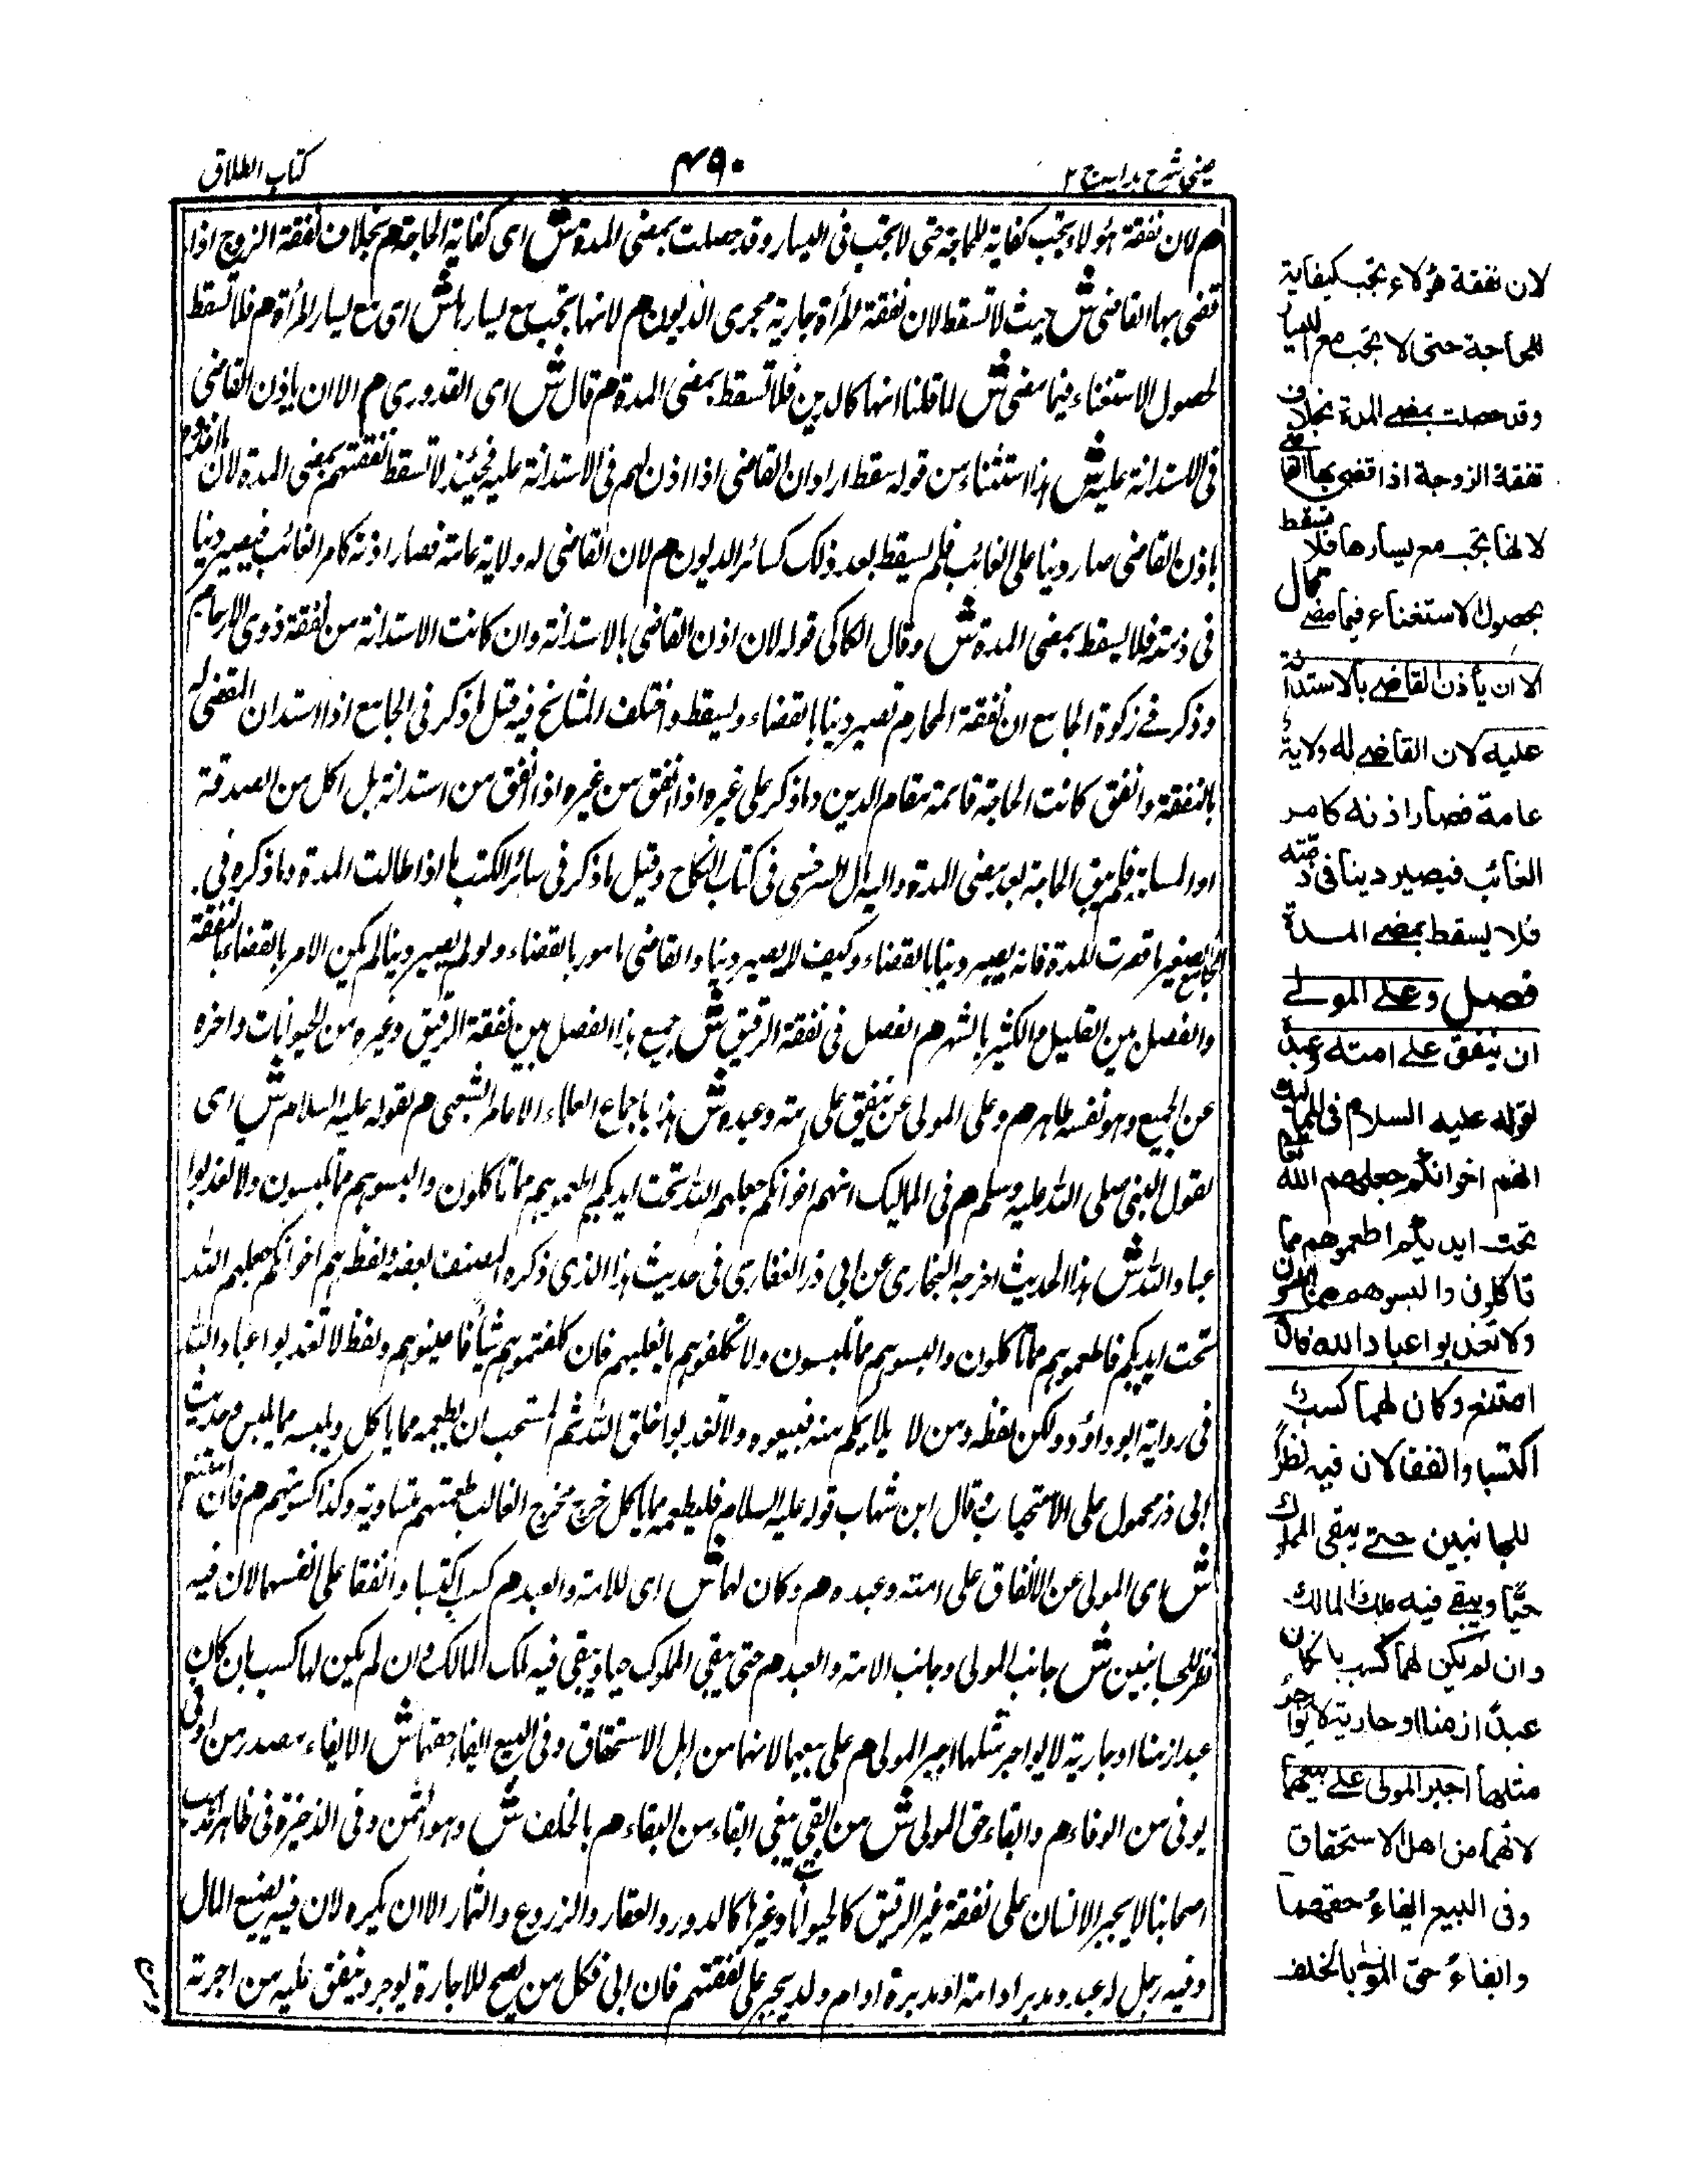 عینی شرح ہدایہ ج ۲
۴۹۰
کتاب الطلاق
م لان نفقة ہؤلاء تجب کفایة للحاجة حتی لا تجب فی الیسار وقد حصلت بمضی المدة ش ای کفایة الحاجة م بخلاف نفقة الزوج اذا
قضی بہا القاضی ش حیث لا تسقط لان نفقة المرأة جاریة مجری الدیون م لانہا تجب مع یسارہا ش ای مع یسار المرأة م فلا تسقط
لحصول الاستغناء فیما مضی ش لما قلنا انہا کالدین فلا تسقط بمضی المدة م قال ش ای القدوری م الا ان یاذن القاضی
فی الاستدانة علیہ ش ہذا استثناء من قولہ سقط اراد ان القاضی اذا اذن لہم فی الاستدانة علیہ فحینئذ لا تسقط نفقتہم بمضی المدة لان
باذن القاضی صار دینا علی الغائب فلم یسقط بعد ذلک کسائر الدیون م لان القاضی لہ ولایة عامة فصار اذنہ کامر الغائب فیصیر دینا
فی ذمتہ فلا یسقط بمضی المدة ش وقال الکاکی قولہ لان اذن القاضی بالاستدانة وان کانت الاستدانة من نفقة ذوی الارحام
وذکر فے زکوة الجامع ان نفقة المحارم تصیر دینا بالقضاء ویسقط واختلف المشائخ فیہ قیل ما ذکر فی الجامع اذا استدان المقضی لہ
بالنفقة وانفق کانت الحاجة قائمة مقام الدین وما ذکر علی غیرہ اذا انفق من غیرہ اذا انفق من استدانة بل اکل من الصدقة
او المسألة فلم یبق الحاجة بعد مضی المدة والیہ مال السرخسی فی کتاب النکاح وقیل ما ذکر فی سائر الکتب ما اذا طالت المدة وما ذکرہ فی
الجامع الصغیر ما قصرت المدة فانہ یصیر دینا بالقضاء وکیف لا یصیر دینا والقاضی مامور بالقضاء ولو لم یصیر دینا لم یکن الامر بالقضاء بالنفقة
والفصل بین القلیل والکثیر بالشہر م الفصل فی نفقة الرقیق ش جمیع ہذا الفصل بین نفقة الرقیق وغیرہ من الحیوانات واخرہ
عن الجمیع وہو نفسہ ظاہر م وعلی المولی عن ینفق علی امتہ وعبدہ ش ہذا باجماع العلماء الا عامر الشعبی م لقولہ علیہ السلام ش ای
لقول النبی صلی اللہ علیہ وسلم م فی الممالیک انہم اخوانکم جعلہم اللہ تحت ایدیکم اطعموہم مما تاکلون والبسوہم مما تلبسون ولا تعذبوا
عباد اللہ ش ہذا الحدیث اخرجہ البخاری عن ابی ذر الغفاری فی حدیث ہذا الذی ذکرہ المصنف بعضہ ولفظہ ہم اخوانکم جعلہم اللہ
تحت ایدیکم فاطعموہم مما تاکلون والبسوہم مما تلبسون ولا تکلفوہم ما یغلبہم فان کلفتموہم شیأ فاعینوہم ولفظ لا تعذبوا عباد اللہ
فی روایة ابو داؤد ولکن لفظہ ومن لا یلایمکم منہ فبیعوہ ولا تعذبوا خلق اللہ ثم المستحب ان یطعمہ مما یاکل ویلبسہ مما یلبس وحدیث
ابی ذر محمول علی الاستحباب وقال ابن شہاب قولہ علیہ السلام فلیطعمہ مما یاکل خرج مخرج الغالب طعمتہم متساویة وکذا کسوتہم م فان امتنع
ش ای المولی عن الانفاق علی امتہ وعبدہ م وکان لہما ش ای للامة والعبد م کسب اکتسبا وانفقا علی انفسہما لان فیہ
نظر للجانبین ش جانب المولی وجانب الامة والعبد م حتی یبقی المملوک حیا ویبقی فیہ ملک المالک وان لم یکن لہما کسب بان کان
عبدا زمنا او جاریة لا یواجر مثلہا اجبر المولی م علی بیعہما لانہما من اہل الاستحقاق وفی البیع ایفاء حقہما ش الایفاء مصدر من اوفی
یوفی من الوفاء م وابقاء حق المولی ش من ابقی یبقی ابقاء من البقاء م بالخلف ش وہو الثمن وفی الذخیرة فی ظاہر مذہب
اصحابنا لا یجبر الانسان علی نفقة غیر الرقیق کالحیوانات وغیرہا کالدور والعقار والزروع والثمار الا ان یکرہ لان فیہ تضییع المال
وفیہ رجل لہ عبد ومدبر او امة او مدبرة او ام ولد یجبر علی نفقتہم فان ابی فکل من یصح للاجارة یوجر وینفق علیہ من اجرتہ
لان نفقة هؤلاء تجب کفایة
للحاجة حتی لا تجب مع الیسار
وقد حصلت بمضی المدة بخلاف
نفقة الزوجة اذا قضی بها القاضی
لانها تجب مع یسارها فلا تسقط
بحصول الاستغناء فیما مضے قال
الا ان یأذن القاضے بالاستدانة
علیه لان القاضے له ولایة
عامة فصار اذنه کامر
الغائب فیصیر دینا فی ذمته
فلا یسقط بمضے المدة
فصل وعلے المولے
ان ینفق علے امته وعبدہ
لقوله علیه السلام فی الممالیک
انهم اخوانکم جعلهم الله تعالی
تحت ایدیکم اطعموهم مما
تاکلون والبسوهم مما تلبسون
ولا تعذبوا عباد الله فان
امتنع وکان لهما کسب
اکتسبا وانفقا لان فیه نظرا
للجانبین حتے یبقی المملوک
حیًّا ویبقے فیه ملک المالک
وان لم یکن لهما کسب بان کان
عبدًا زمنا او جاریة لا یؤاجر
مثلها اجبر المولی علے بیعهما
لانهما من اهل الاستحقاق
وفی البیع ایفاء حقهما
وابقاء حق المولی بالخلف